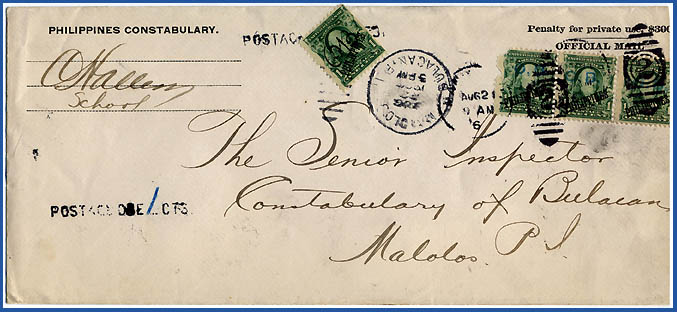 PHILIPPINES CONSTABULARY.
Penalty for private use, $300
OFFICIAL MAIL.
School
MALOLOS
BULACAN, P.I.
AUG 21
AM
The Senior Inspector
Constabulary of Bulacan
Malolos. P. I.
POSTAGE DUE 1 CTS.